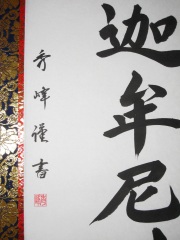 迦牟尼
秀峰謹書